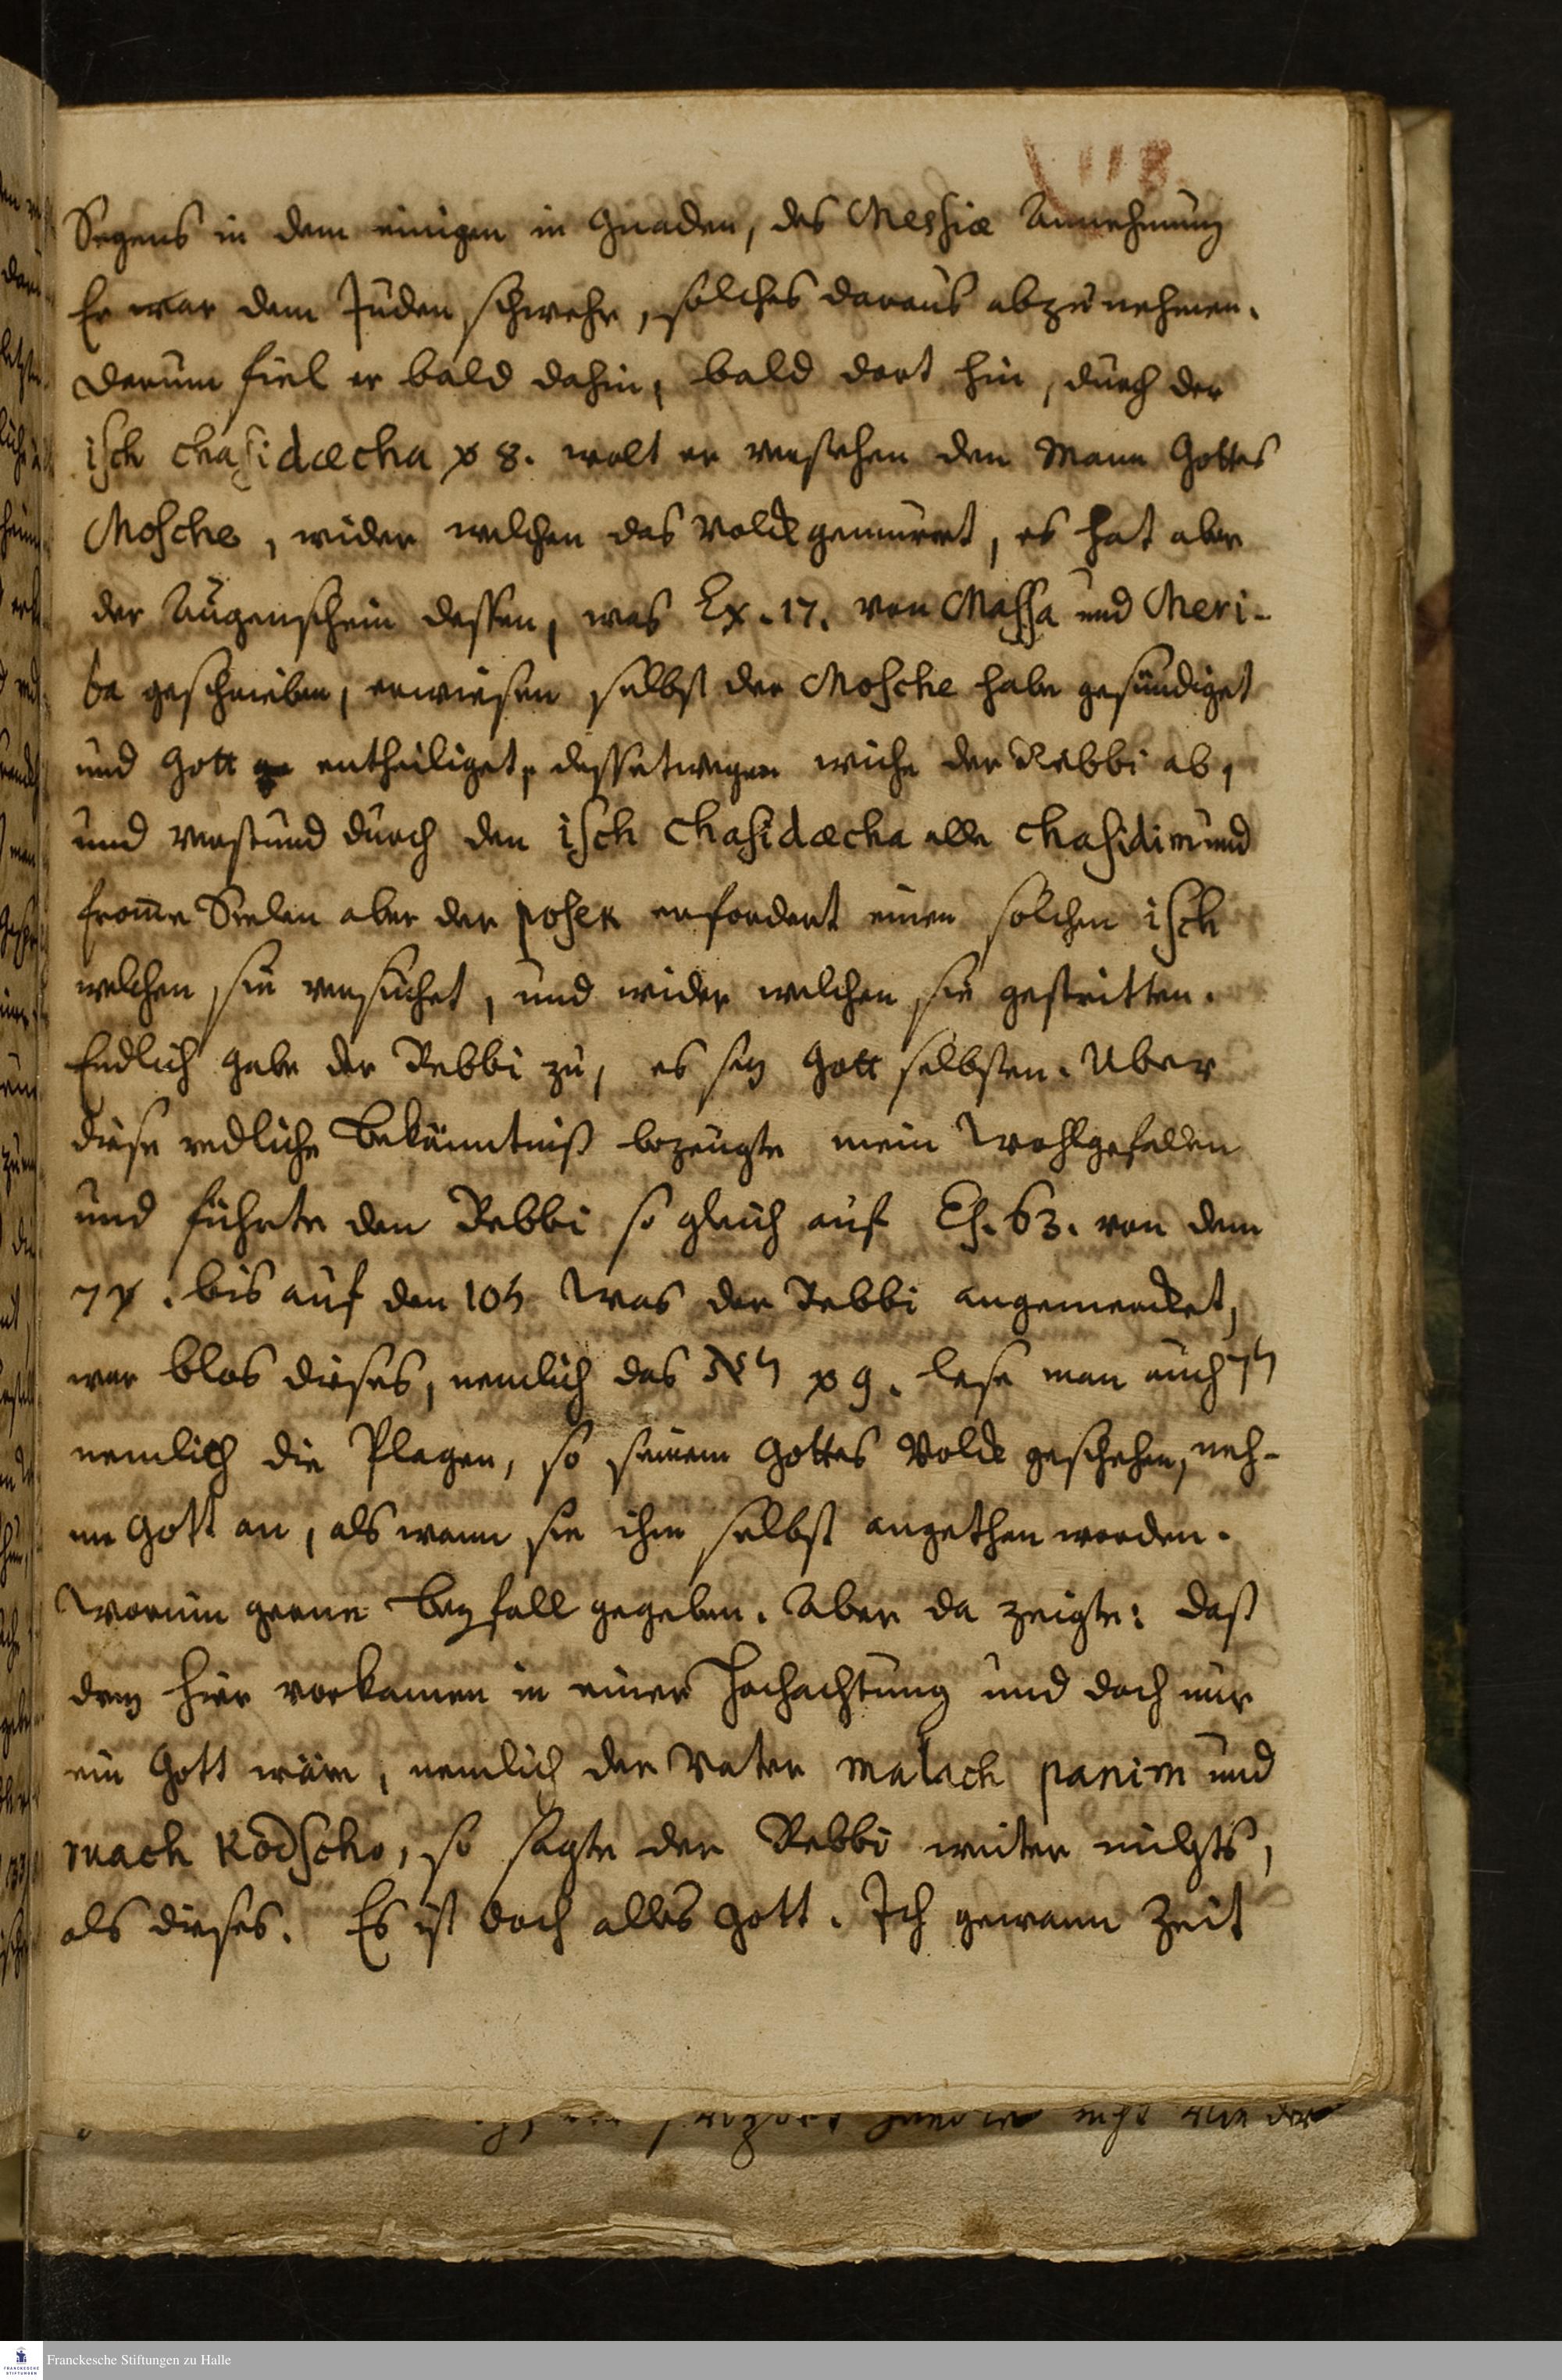 118.
Segens in dem einigen in Gnaden, des Messiæ Annehmung
Er war dem Juden schwehr, solches daraus abzunehmen.
Darum fiel er bald dahin, bald dort hin, durch der
isch chasidæcha v 8. wolt er verstehen den Mann Gottes
Mosche, wider welchen das Volck gemurret, es hat aber
der Augenschein dessen, was Ex. 17. von Massa und Meri-
ba geschrieben, erwiesen selbst der Mosche habe gesündiget
und Gott entheiliget, dessetwegen wiche der Rebbi ab,
und verstund durch den isch chasidæcha alle chasidim und
from̄e Seelen aber der posek erfordert einen solchen isch
welchen sie versuchet, und wider welchen sie gestritten.
Endlich gabe der Rebbi zu, es sey Gott selbsten. Uber
diese redliche Bekänntniß bezeugte mein Wohlgefallen
und führte den Rebbi so gleich auf Es. 63. von dem
7 v. bis auf den 10t Was der Rebbi angemercket,
war blos dieses, nemlich das לא v 9. lese man auch לו
nemlich die Plagen, so seinem Gottes Volck geschehen, neh-
me Gott an, als wann sie ihm selbst angethan worden.
Worinn gerne Beyfall gegeben. Aber da zeigte: daß
drey hier vorkamen in einer Hochachtung und doch nur
ein Gott wäre, nemlich der Vater malach panim und
ruach Kodscho, so sagte der Rebbi weiter nichts,
als dieses. Es ist doch alles Gott. Ich gewann Zeit
Franckesche Stiftungen zu Halle